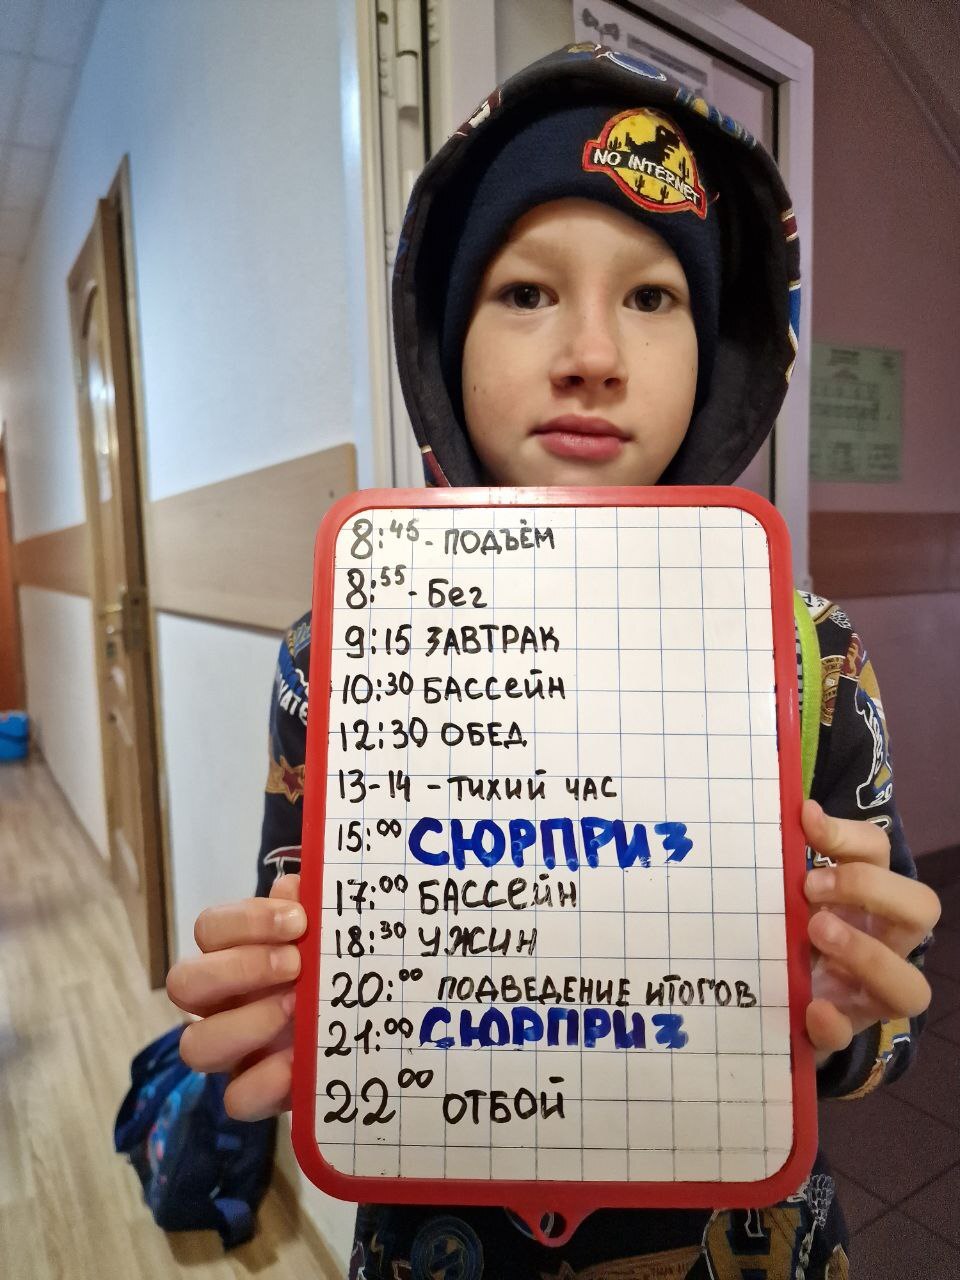 NO INTERNET
8:45 - ПОДЪЁМ
8:55 - Бег
9:15 ЗАВТРАК
10:30 БАССЕЙН
12:30 ОБЕД
13-14 - ТИХИЙ ЧАС
15:00 СЮРПРИЗ
17:00 БАССЕЙН
18:30 УЖИН
20:00 ПОДВЕДЕНИЕ ИТОГОВ
21:00 СЮРПРИЗ
22 00 ОТБОЙ